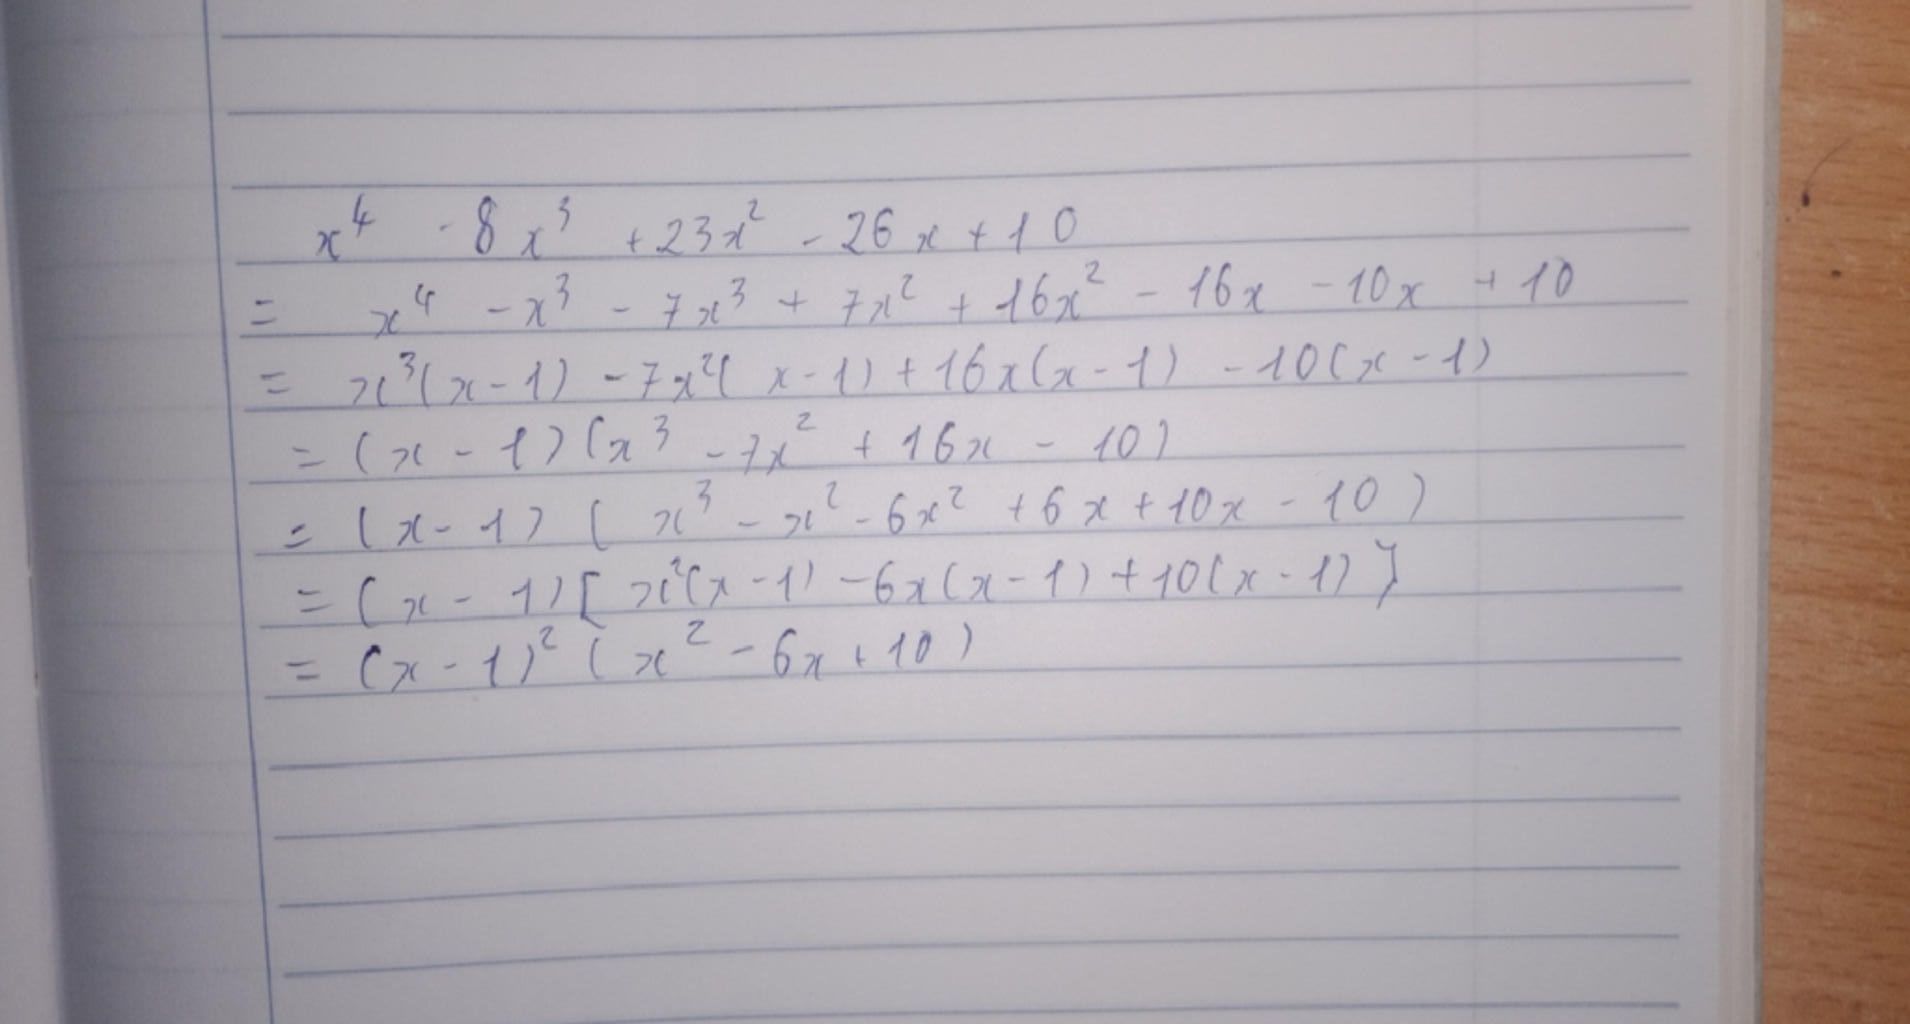 x⁴ - 8x³ + 23x² - 26x + 10
= x⁴ - x³ - 7x³ + 7x² + 16x² - 16x - 10x + 10
= x³(x-1) - 7x²(x-1) + 16x(x-1) - 10(x-1)
= (x-1)(x³ - 7x² + 16x - 10)
= (x-1)(x³ - x² - 6x² + 6x + 10x - 10)
= (x-1)[x²(x-1) - 6x(x-1) + 10(x-1)]
= (x-1)²(x² - 6x + 10)